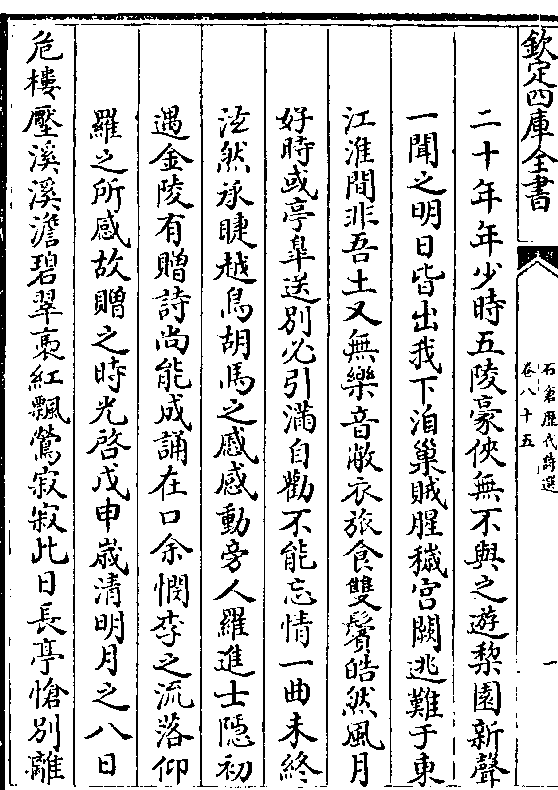 欽定四庫全書
石倉歷代詩選
卷八十五
一
二十年年少時五陵豪俠無不與之遊梨園新聲
一聞之明日皆出我下洎巢賊腥穢宮闕逃難于東
江淮間非吾土又無樂音敝衣旅食雙鬢皓然風月
好時或亭臯送別必引滿自勸不能忘情一曲未終
泫然承睫越鳥胡馬之感感動旁人羅進士隱初
遇金陵有贈詩尚能成誦在口余憫李之流落仰
羅之所感故贈之時光啓戊申歲清明月之八日
危樓壓溪溪澹碧翠裛紅飄鶯寂寂此日長亭愴別離